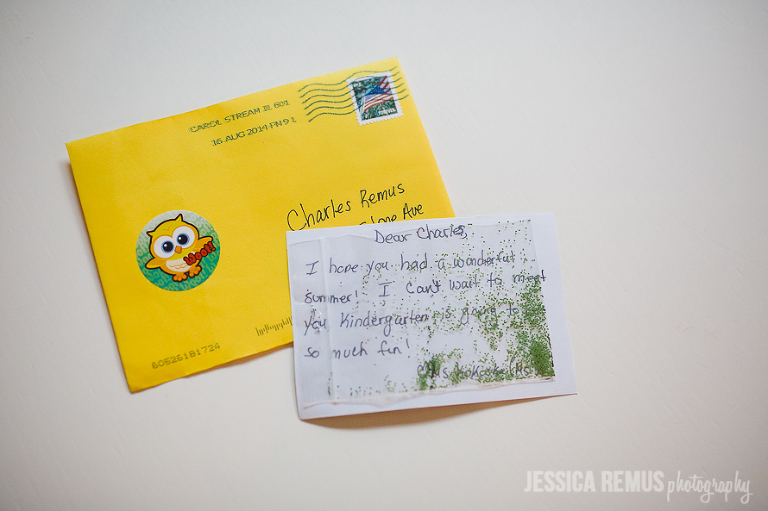 CAROL STREAM IL 601
16 AUG 2014 PM 9 L
FOREVER
Charles Remus
Stone Ave
Woot!
60526181724
Dear Charles,
I hope you had a wonderful
summer! I can't wait to meet
you Kindergarten is going to
so much fun!
JESSICA REMUS photography